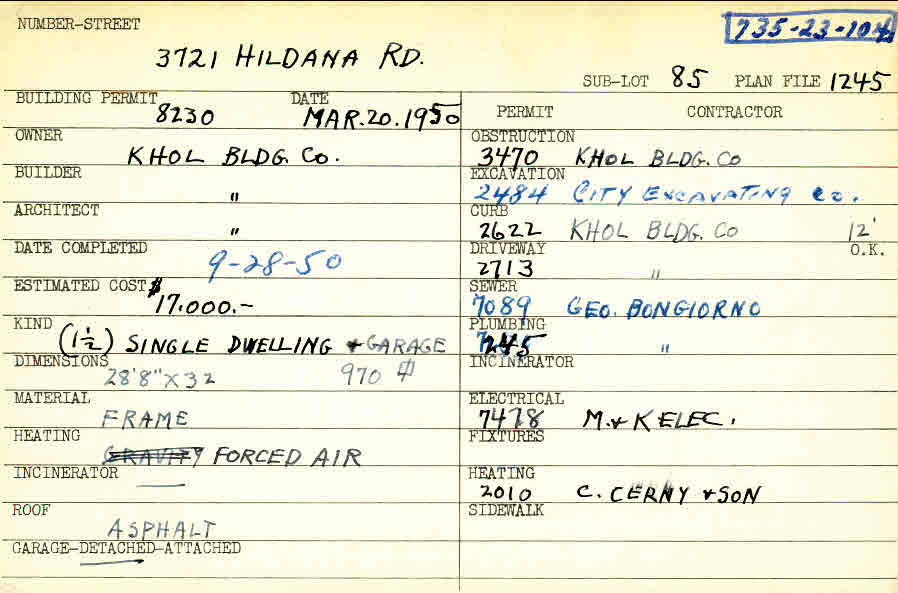 NUMBER-STREET
735-23-104
3721 HILDANA RD.
SUB-LOT 85 PLAN FILE 1245
BUILDING PERMIT DATE
8230 MAR. 20. 1950
OWNER
KHOL BLDG. Co.
BUILDER
"
ARCHITECT
"
DATE COMPLETED
9-28-50
ESTIMATED COST $
17.000.-
KIND
(1½) SINGLE DWELLING + GARAGE
DIMENSIONS
28'8" X 32 970
MATERIAL
FRAME
HEATING
GRAVITY FORCED AIR
INCINERATOR
ROOF
ASPHALT
GARAGE-DETACHED-ATTACHED
PERMIT CONTRACTOR
OBSTRUCTION
3470 KHOL BLDG. Co
EXCAVATION
2484 CITY EXCAVATING Co.
CURB
2622 KHOL BLDG. Co 12'
DRIVEWAY O.K.
2713 "
SEWER
7089 GEO. BONGIORNO
PLUMBING
"
INCINERATOR
ELECTRICAL
7478 M. + K ELEC.
FIXTURES
HEATING
2010 C. CERNY + SON
SIDEWALK